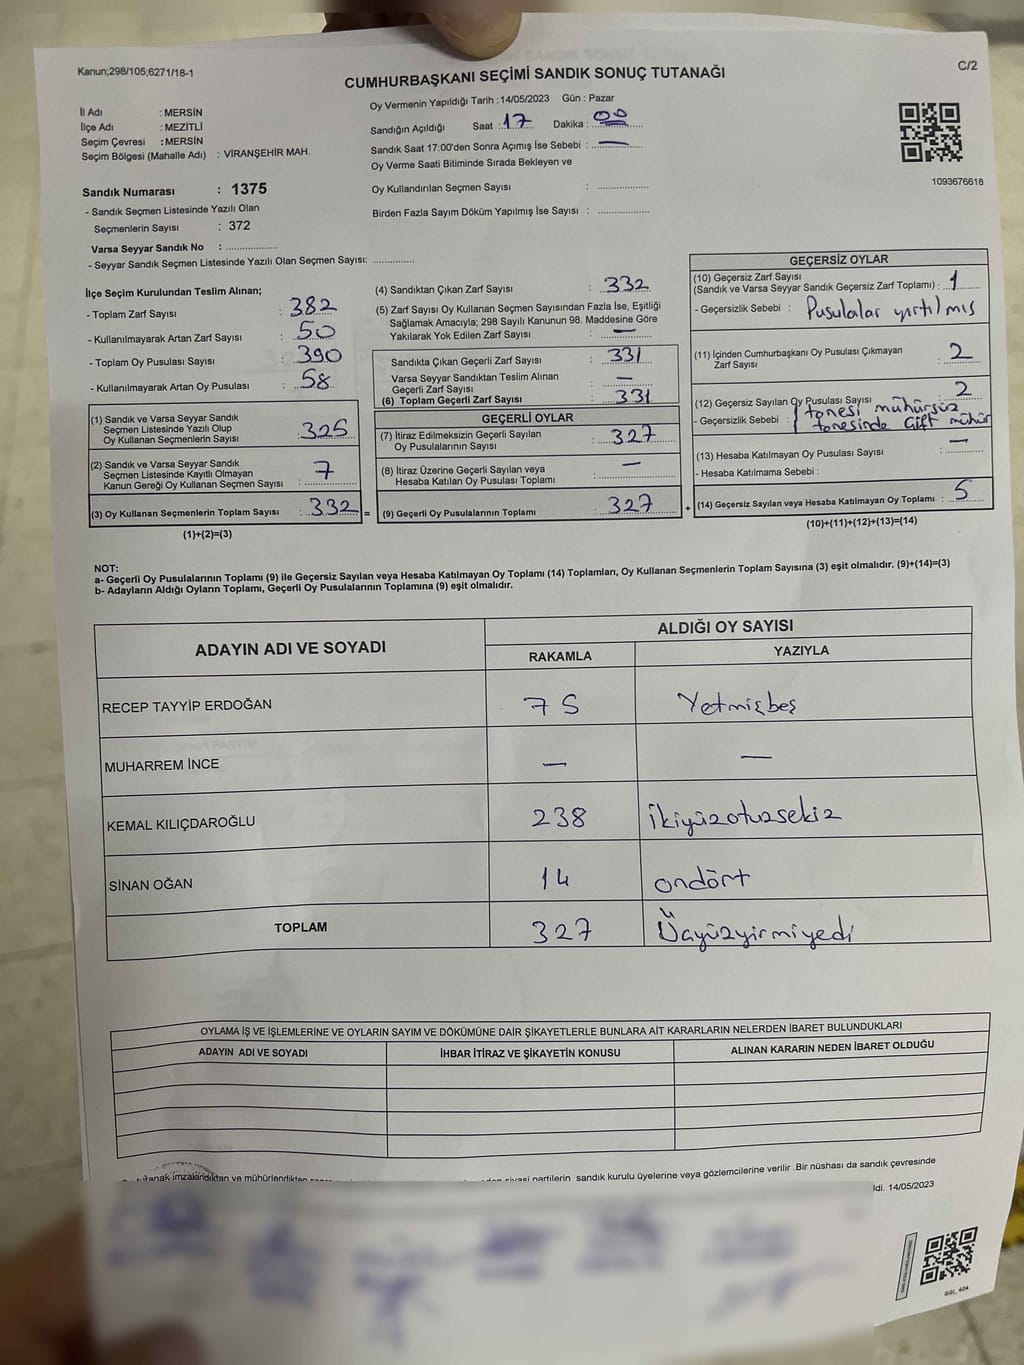 Kanun;298/105;6271/18-1
C/2
CUMHURBAŞKANI SEÇİMİ SANDIK SONUÇ TUTANAĞI
İl Adı : MERSİN
İlçe Adı : MEZİTLİ
Seçim Çevresi : MERSİN
Seçim Bölgesi (Mahalle Adı) : VİRANŞEHİR MAH.
Sandık Numarası : 1375
- Sandık Seçmen Listesinde Yazılı Olan
Seçmenlerin Sayısı : 372
Varsa Seyyar Sandık No : ................
- Seyyar Sandık Seçmen Listesinde Yazılı Olan Seçmen Sayısı: ............
Oy Vermenin Yapıldığı Tarih : 14/05/2023 Gün : Pazar
Sandığın Açıldığı Saat : 17 Dakika : 00
Sandık Saat 17:00'den Sonra Açımış İse Sebebi : —
Oy Verme Saati Bitiminde Sırada Bekleyen ve
Oy Kullandırılan Seçmen Sayısı : ................
Birden Fazla Sayım Döküm Yapılmış İse Sayısı : ................
1093676618
İlçe Seçim Kurulundan Teslim Alınan;
- Toplam Zarf Sayısı : 382
- Kullanılmayarak Artan Zarf Sayısı : 50
- Toplam Oy Pusulası Sayısı : 390
- Kullanılmayarak Artan Oy Pusulası : 58
(1) Sandık ve Varsa Seyyar Sandık
Seçmen Listesinde Yazılı Olup
Oy Kullanan Seçmenlerin Sayısı : 325
(2) Sandık ve Varsa Seyyar Sandık
Seçmen Listesinde Kayıtlı Olmayan
Kanun Gereği Oy Kullanan Seçmen Sayısı : 7
(3) Oy Kullanan Seçmenlerin Toplam Sayısı : 332 =
(1)+(2)=(3)
(4) Sandıktan Çıkan Zarf Sayısı : 332
(5) Zarf Sayısı Oy Kullanan Seçmen Sayısından Fazla İse, Eşitliği
Sağlamak Amacıyla; 298 Sayılı Kanunun 98. Maddesine Göre
Yakılarak Yok Edilen Zarf Sayısı : —
Sandıkta Çıkan Geçerli Zarf Sayısı : 331
Varsa Seyyar Sandıktan Teslim Alınan
Geçerli Zarf Sayısı : —
(6) Toplam Geçerli Zarf Sayısı : 331
GEÇERLİ OYLAR
(7) İtiraz Edilmeksizin Geçerli Sayılan
Oy Pusulalarının Sayısı : 327
(8) İtiraz Üzerine Geçerli Sayılan veya
Hesaba Katılan Oy Pusulası Toplamı : —
(9) Geçerli Oy Pusulalarının Toplamı : 327 +
GEÇERSİZ OYLAR
(10) Geçersiz Zarf Sayısı
(Sandık ve Varsa Seyyar Sandık Geçersiz Zarf Toplamı) : 1
- Geçersizlik Sebebi : Pusulalar yırtılmış
(11) İçinden Cumhurbaşkanı Oy Pusulası Çıkmayan
Zarf Sayısı : 2
(12) Geçersiz Sayılan Oy Pusulası Sayısı : 2
1 tonesi mühürsüz
- Geçersizlik Sebebi : 1 tonesinde Çift mühür
(13) Hesaba Katılmayan Oy Pusulası Sayısı : —
- Hesaba Katılmama Sebebi :
(14) Geçersiz Sayılan veya Hesaba Katılmayan Oy Toplamı : 5
(10)+(11)+(12)+(13)=(14)
NOT:
a- Geçerli Oy Pusulalarının Toplamı (9) ile Geçersiz Sayılan veya Hesaba Katılmayan Oy Toplamı (14) Toplamları, Oy Kullanan Seçmenlerin Toplam Sayısına (3) eşit olmalıdır. (9)+(14)=(3)
b- Adayların Aldığı Oyların Toplamı, Geçerli Oy Pusulalarının Toplamına (9) eşit olmalıdır.
ADAYIN ADI VE SOYADI ALDIĞI OY SAYISI
RAKAMLA YAZIYLA
RECEP TAYYİP ERDOĞAN 75 Yetmişbeş
MUHARREM İNCE — —
KEMAL KILIÇDAROĞLU 238 İkiyüzotuzsekiz
SİNAN OĞAN 14 ondört
TOPLAM 327 Üçyüzyirmiyedi
OYLAMA İŞ VE İŞLEMLERİNE VE OYLARIN SAYIM VE DÖKÜMÜNE DAİR ŞİKAYETLERLE BUNLARA AİT KARARLARIN NELERDEN İBARET BULUNDUKLARI
ADAYIN ADI VE SOYADI İHBAR İTİRAZ VE ŞİKAYETİN KONUSU ALINAN KARARIN NEDEN İBARET OLDUĞU
tutanak imzalandıktan ve mühürlendikten siyasi partilerin sandık kurulu üyelerine veya gözlemcilerine verilir .Bir nüshası da sandık çevresinde
ldi. 14/05/2023